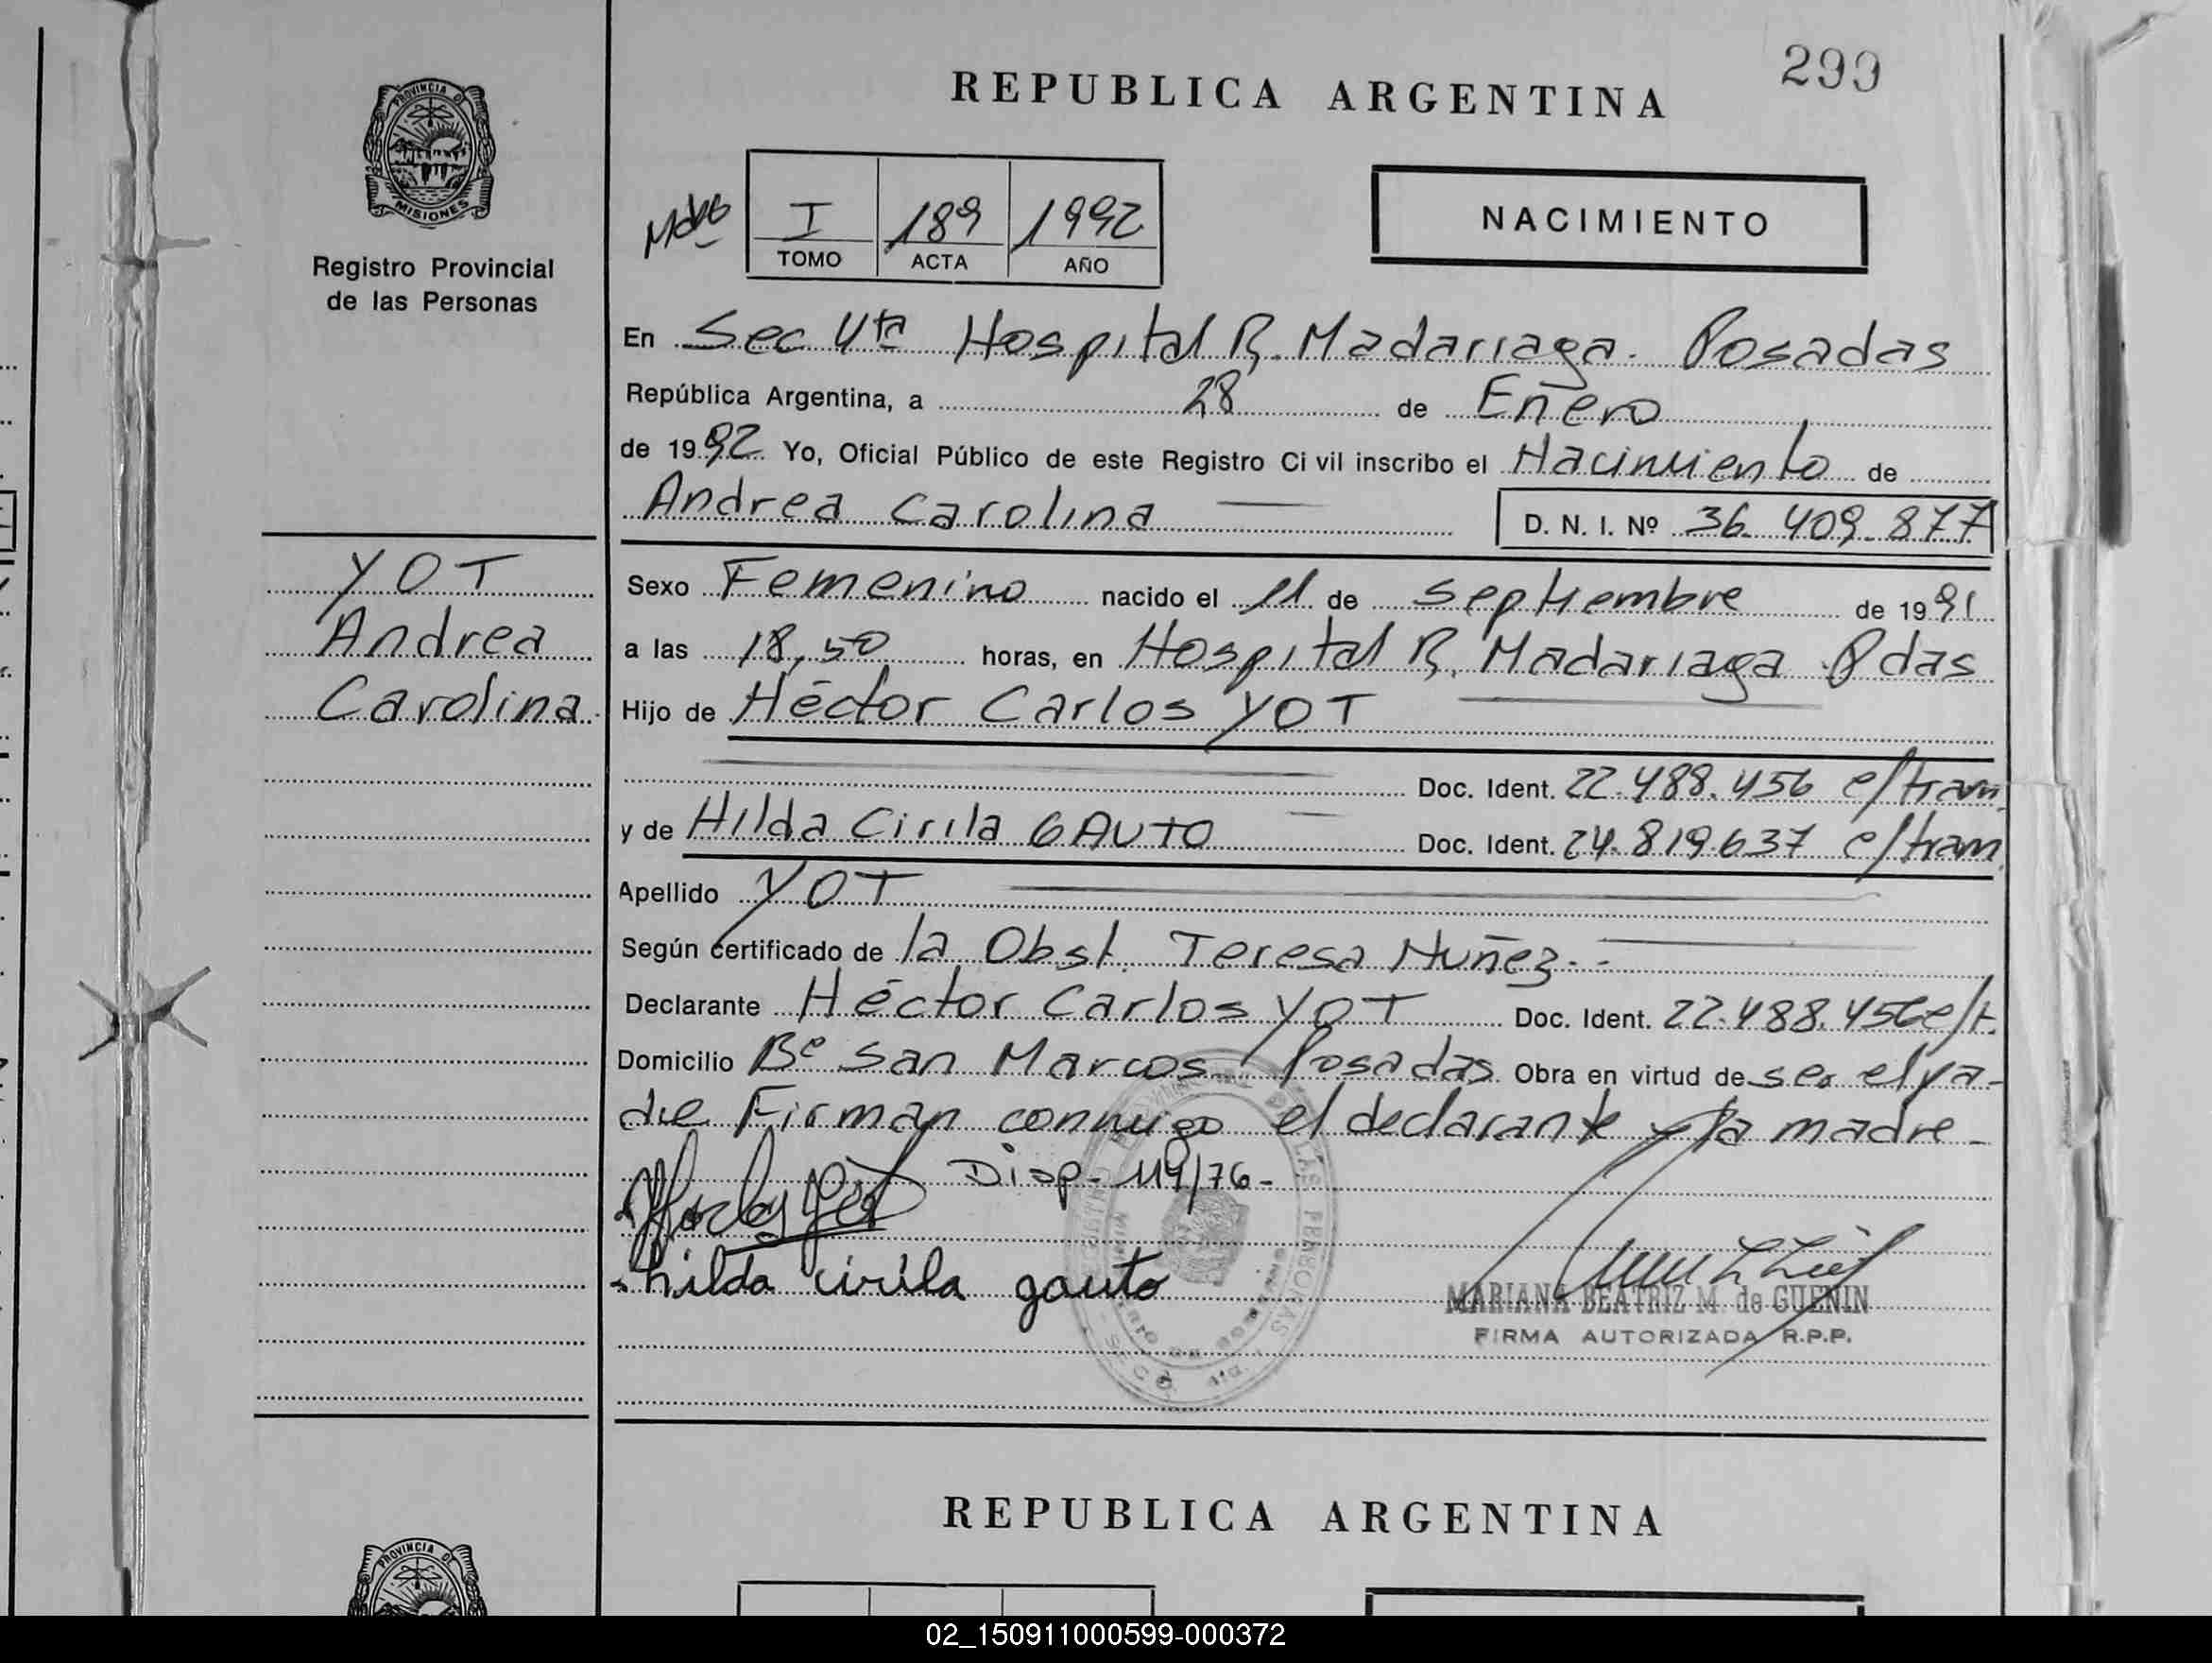 299
REPUBLICA ARGENTINA
PROVINCIA DE
MISIONES
Registro Provincial
de las Personas
I 189 1992
TOMO ACTA AÑO
NACIMIENTO
En Sec 4ta Hospital R. Madariaga. Posadas
República Argentina, a 28 de Enero
de 1992 Yo, Oficial Público de este Registro Civil inscribo el Nacimiento de
Andrea Carolina D. N. I. Nº 36.409.877
YOT
Andrea
Carolina
Sexo Femenino nacido el 11 de septiembre de 1991
a las 18,50 horas, en Hospital R. Madariaga Pdas
Hijo de Héctor Carlos YOT
Doc. Ident. 22.488.456 e/tram.
y de Hilda Cirila GAUTO Doc. Ident. 24.819.637 e/tram.
Apellido YOT
Según certificado de la Obst. Teresa Nuñez.-
Declarante Héctor Carlos YOT Doc. Ident. 22.488.456 e/t.
Domicilio Bº San Marcos Posadas Obra en virtud de ser el pa-
dre Firman conmigo el declarante y la madre-
Disp- 119/76-
hilda cirila gauto
MARIANA BEATRIZ M. de GUENIN
FIRMA AUTORIZADA R.P.P.
REPUBLICA ARGENTINA
PROVINCIA DE
02_150911000599-000372